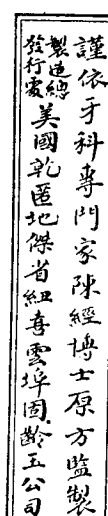 謹依牙科專門家陳經博士原方監製
製造總
發行處
美國乾匿地傑省紐毒雲埠固齡玉公司